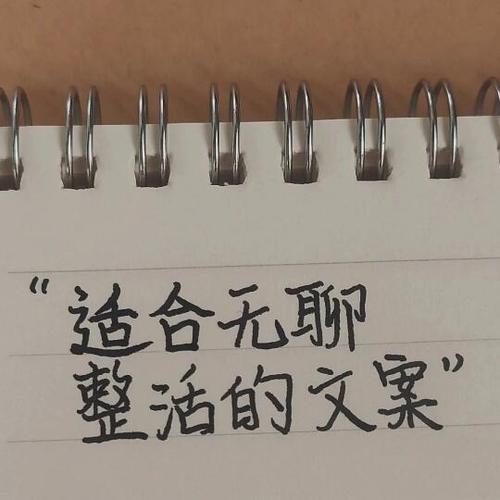 “适合无聊
整活的文案”